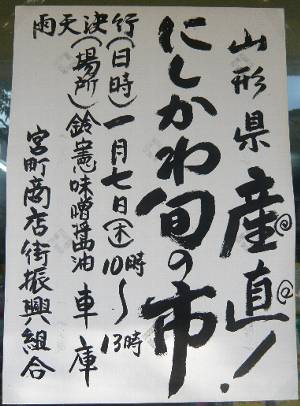 山形県産直!
にしかわ旬の市
雨天決行
(日時)一月七日(木)10時〜13時
(場所)鈴憲味噌醤油車庫
宮町商店街振興組合